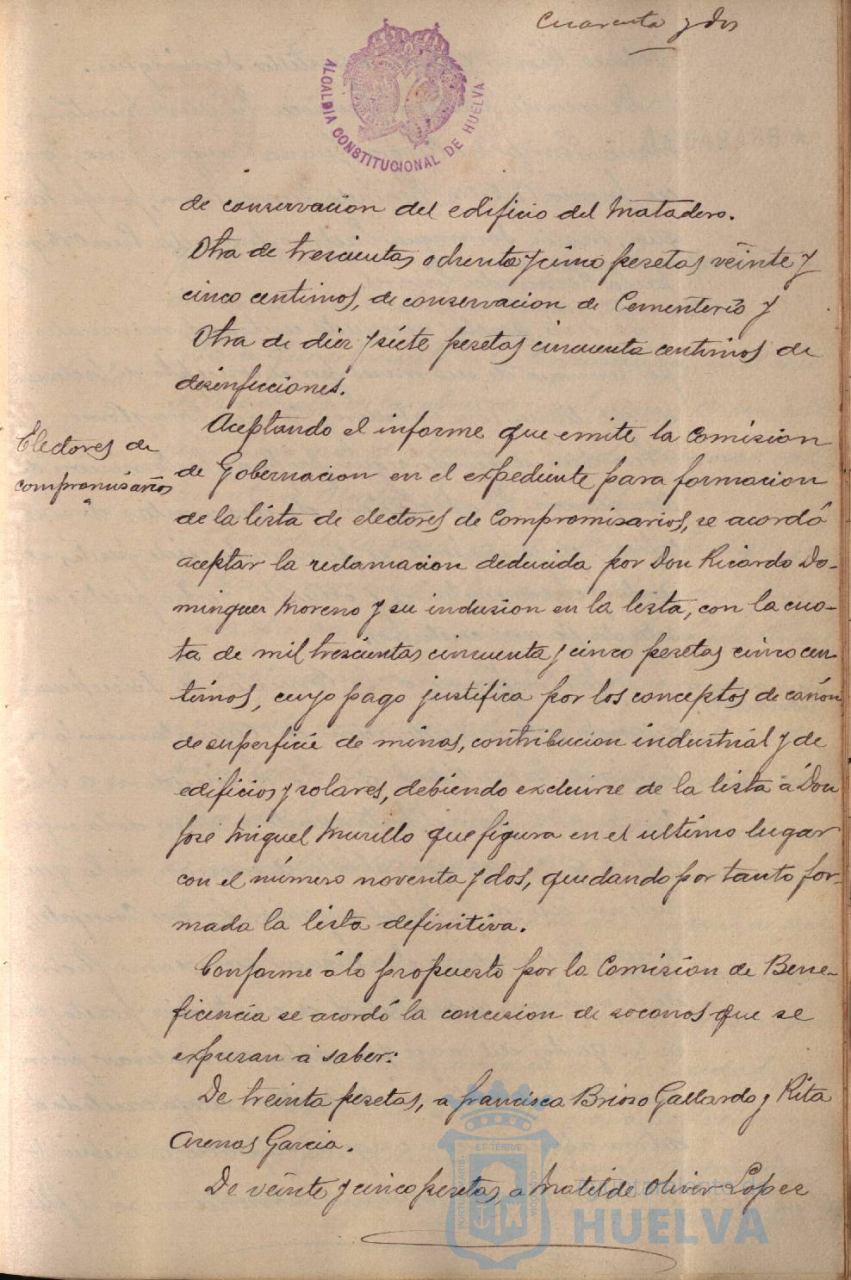 Cuarenta y dos
ALCALDIA CONSTITUCIONAL DE HUELVA
de conservacion del edificio del Matadero.
Otra de trescientas ochenta y cinco pesetas veinte y
cinco centimos, de conservacion de Cementerio y
Otra de diez y siete pesetas cincuenta centimos de
desinfecciones.
Electores de
compromisarios
Aceptando el informe que emite la Comision
de Gobernacion en el expediente para formacion
de la lista de electores de Compromisarios, se acordó
aceptar la reclamacion deducida por Don Ricardo Do-
minguez Moreno y su inclusion en la lista, con la cuo-
ta de mil trescientas cincuenta y cinco pesetas cinco cen
timos, cuyo pago justifica por los conceptos de cañon
de superficie de minas, contribucion industrial y de
edificios y solares, debiendo excluirse de la lista á Don
José Miguel Murillo que figura en el ultimo lugar
con el número noventa y dos, quedando por tanto for-
mada la lista definitiva.
Conforme á lo propuesto por la Comision de Bene-
ficencia se acordó la concesion de socorros que se
expresan á saber:
De treinta pesetas, a Francisca Brioso Gallardo y Rita
Arenas Garcia.
De veinte y cinco pesetas a Matilde Oliver Lopez
HUELVA